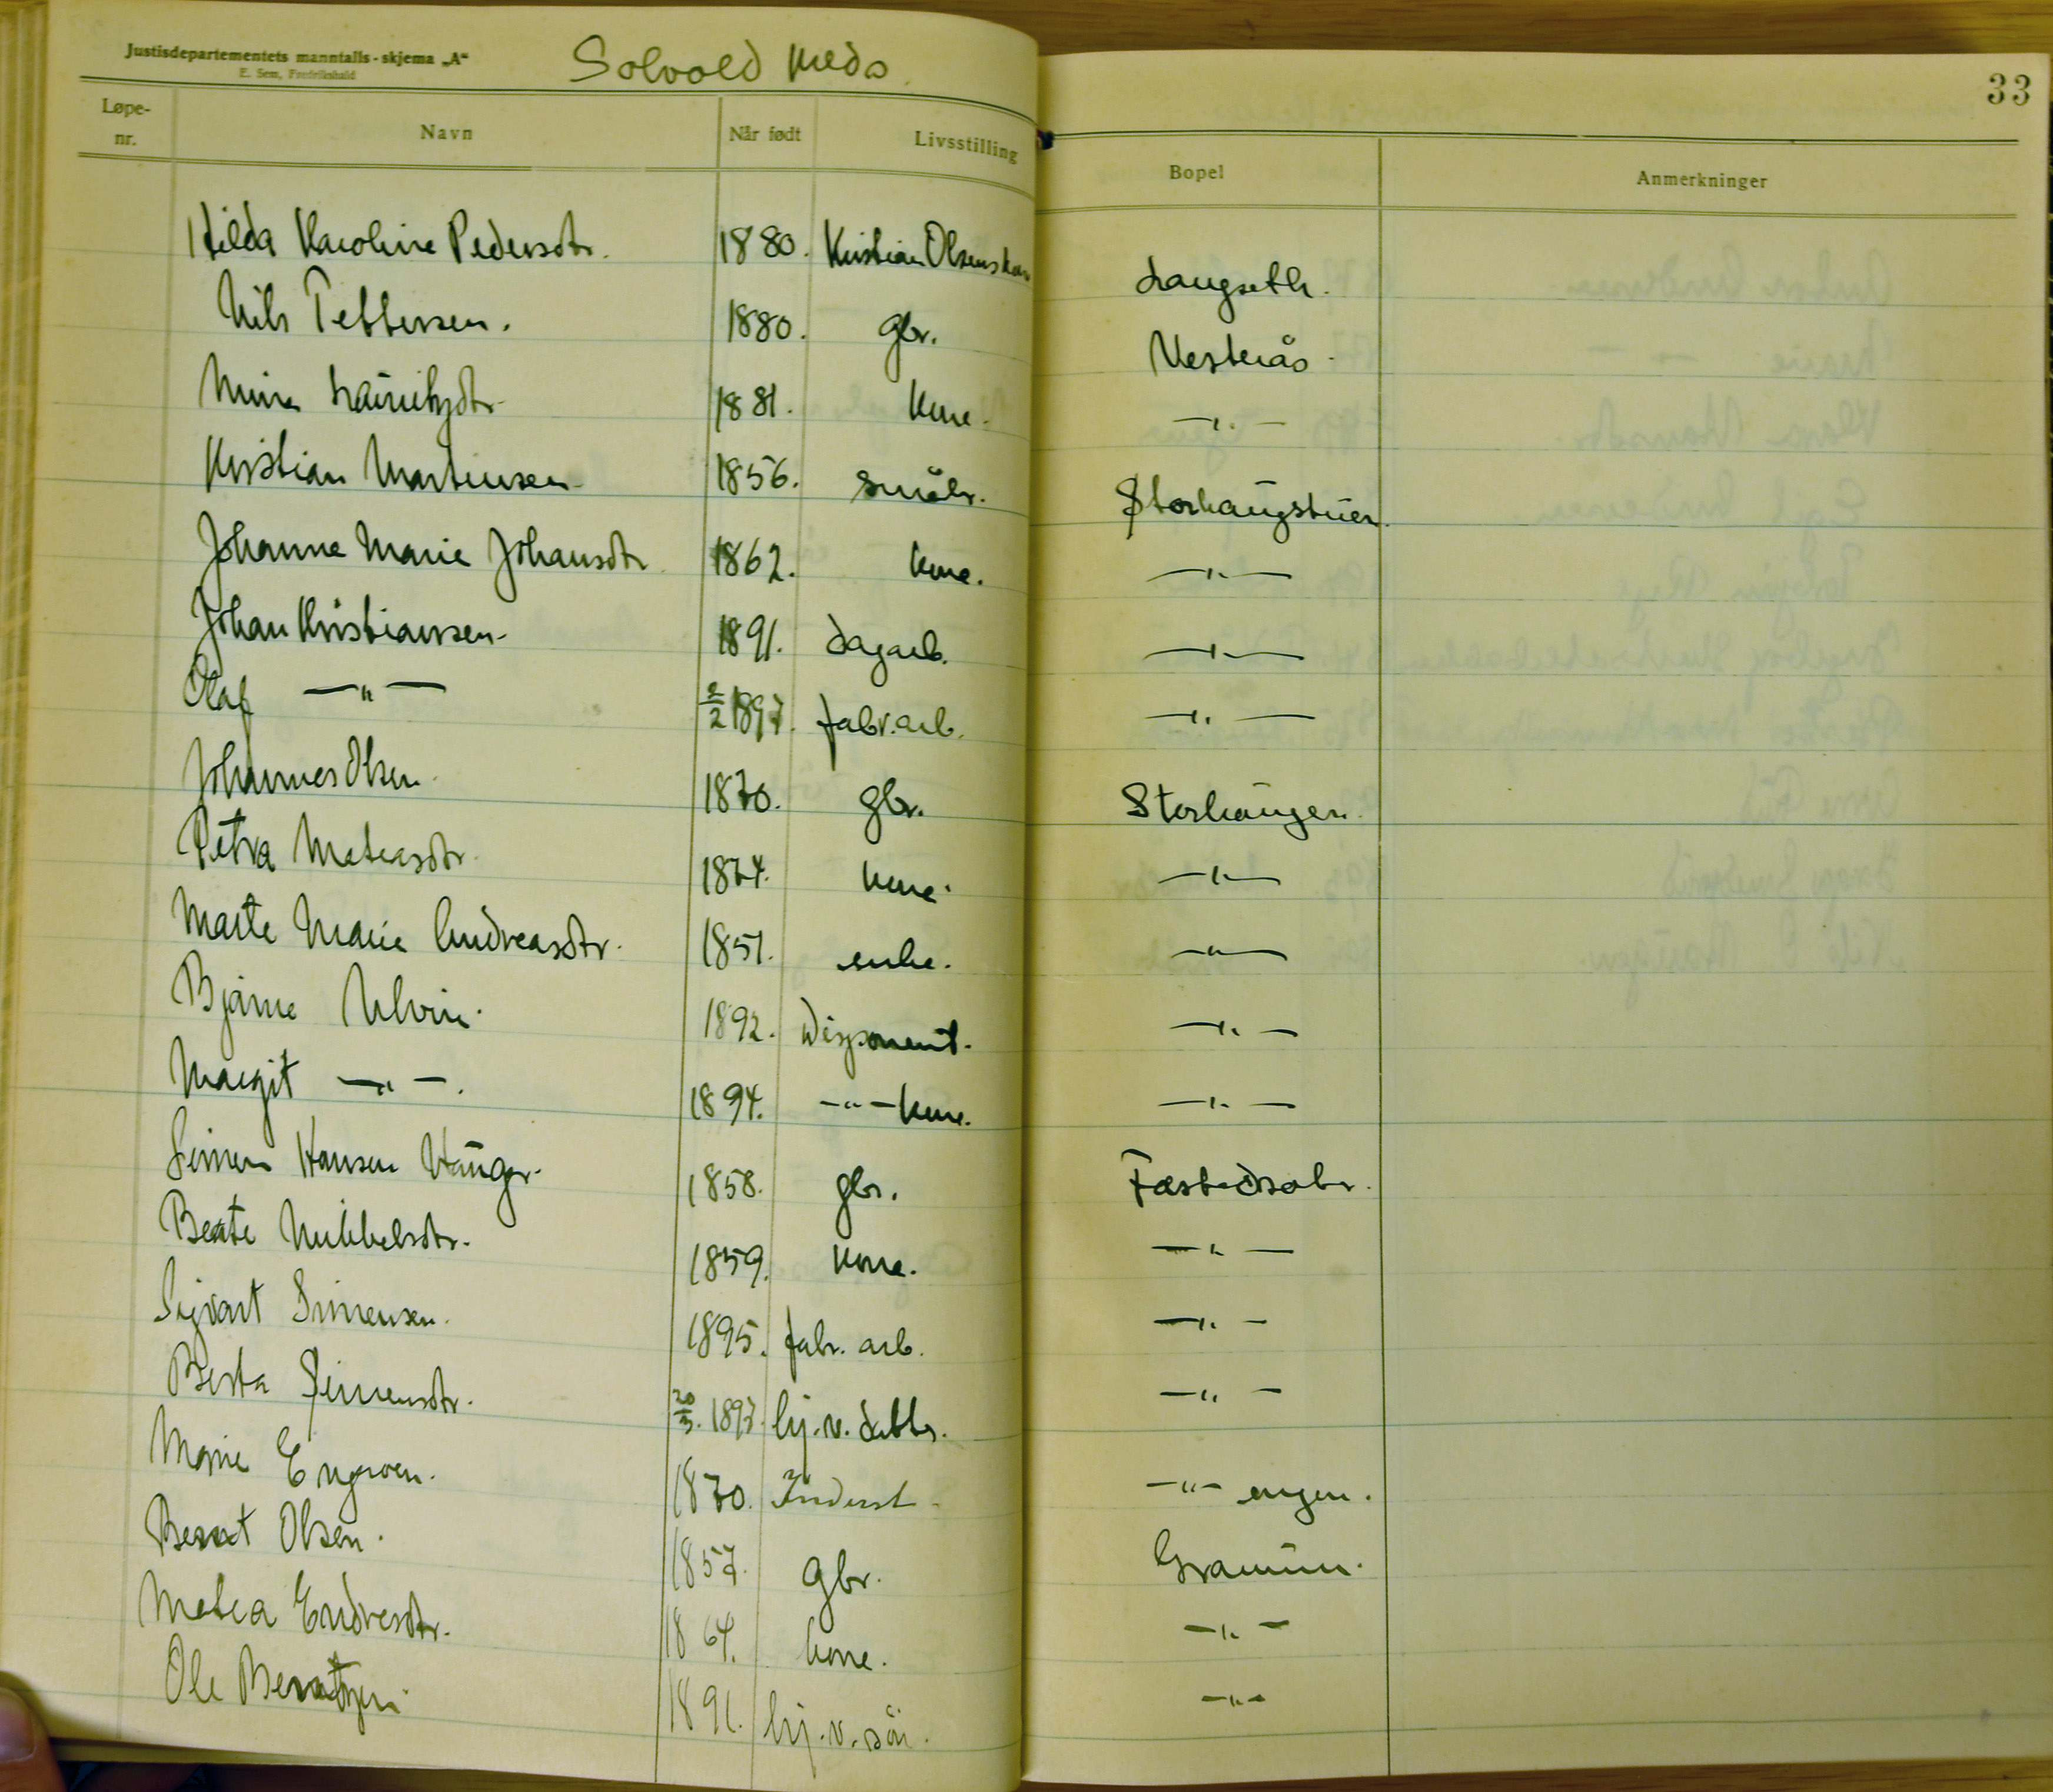 Justisdepartementets manntalls-skjema „A“
E. Sem, Fredrikshald
Solvold kreds
33
Løpe-nr. Navn Når født Livsstilling Bopel Anmerkninger
Hilda Karoline Pedersdtr. 1880. Kristian Olsens kone Langseth.
Nils Pettersen. 1880. gbr. Vesterås.
Mina Lauritzdtr. 1881. kone. —„—
Kristian Martinsen 1856. småbr. Storhaugstuen.
Johanne Marie Johansdtr. 1862. kone. —„—
Johan Kristiansen 1891. dagarb. —„—
Olaf —„— 2/2 1897. fabr.arb. —„—
Johannes Olsen 1870. gbr. Storhaugen.
Petra Mateasdtr. 1874. kone. —„—
Marte Marie Andreasdtr. 1851. enke. —„—
Bjarne Ulvin. 1892. Disponent. —„—
Margit —„—. 1894. —„— kone. —„—
Simen Hansen Hauger. 1858. gbr. Fæstedsæter.
Beate Mikkelsdtr. 1859. kone. —„—
Sigvart Simensen. 1895. fabr. arb. —„—
Berta Simensdtr. 1897. hj.v. datter. —„—
Marie Engoen. 1870. Inderst —„— engen.
Bernt Olsen. 1857. Gbr. Gramum.
Matea Endresdtr. 1864. kone. —„—
Ole Berntzen. 1891. hj.v. sön. —„—